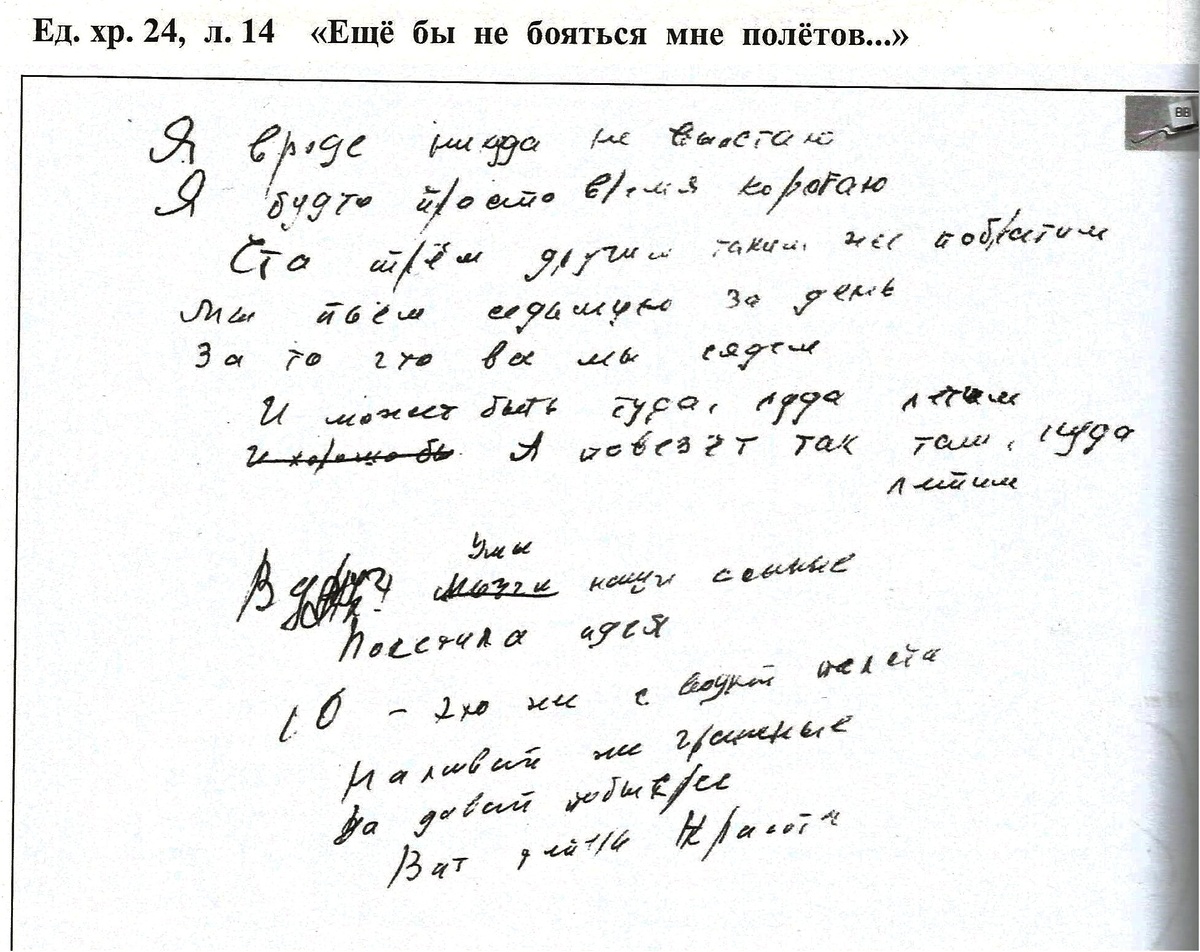 Ед. хр. 24, л. 14 «Ещё бы не бояться мне полётов...»
ВВ
Я вроде никуда не вылетаю
Я будто просто время коротаю
Ста трём другим таким же побратим
Мы пьём седьмую за день
За то что все мы сядем
И может быть туда, куда летим
И хорошо бы А повезёт так там, куда
летим
Вдруг
Умы
Мозги наши сонные
Посетила идея
О - это же с водкой полета
Наливай же граненые
Да давай побыстрее
Вот